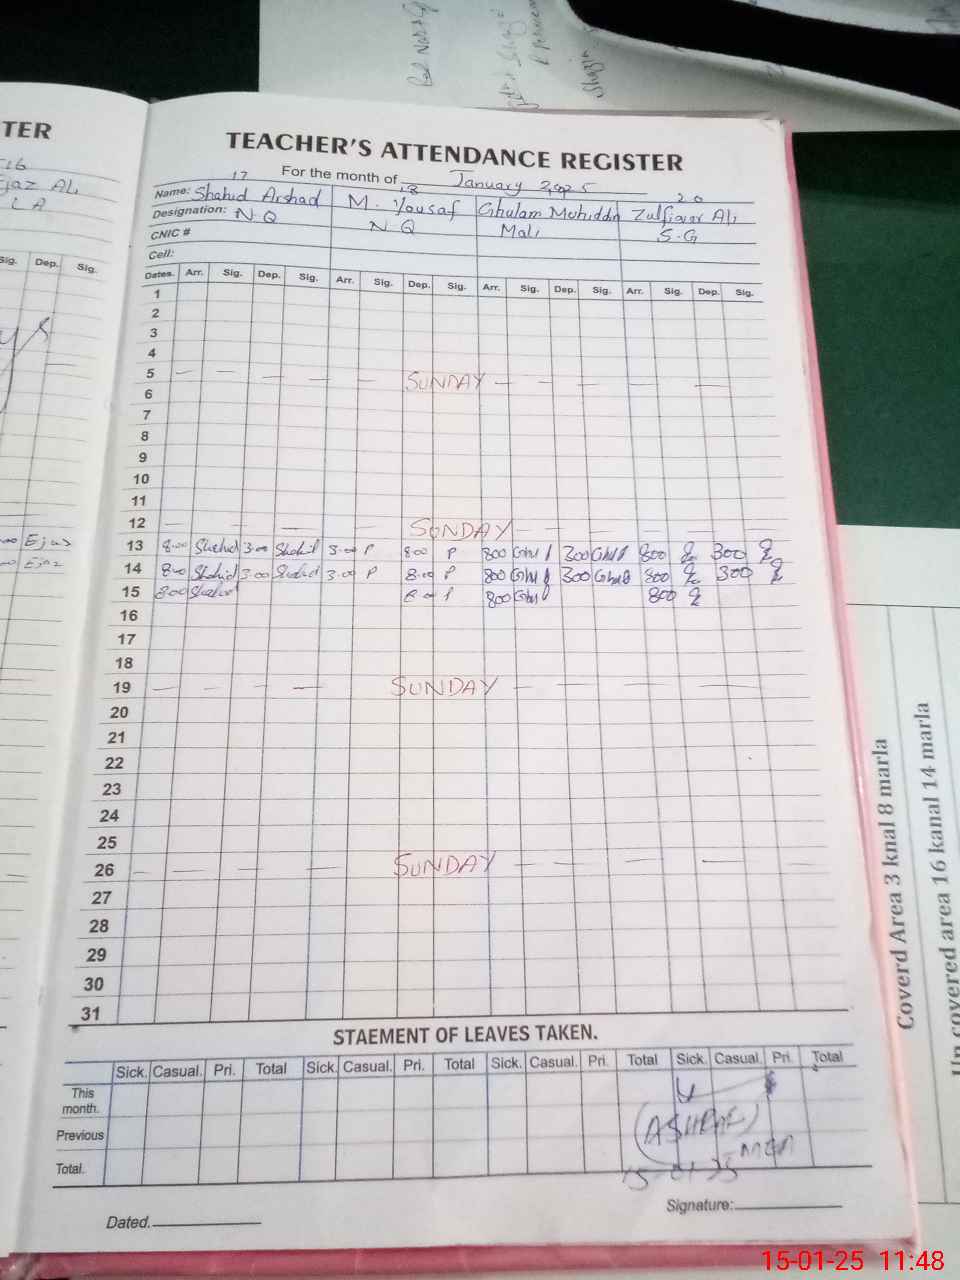 TER
TEACHER'S ATTENDANCE REGISTER
For the month of January 2025
17 18 20
Name: Shahid Arshad M. Yousaf Ghulam Muhiddin Zulfiqar Ali
Designation: N Q N Q Mali S.G
CNIC #
Cell:
Sig. Dep. Sig.
Dates. Arr. Sig. Dep. Sig. Arr. Sig. Dep. Sig. Arr. Sig. Dep. Sig. Arr. Sig. Dep. Sig.
1
2
3
4
5 SUNDAY
6
7
8
9
10
11
12 SUNDAY
13 8.00 Shahid 3.00 Shahid 3.00 P 800 P 800 Ghul 300 Ghul 800 300
14 8.00 Shahid 3.00 Shahid 3.00 P 8.00 P 800 Ghul 300 Ghul 800 300
15 8.00 Shahid 800 Ghul 800
16
17
18
19 SUNDAY
20
21
22
23
24
25
26 SUNDAY
27
28
29
30
31
STAEMENT OF LEAVES TAKEN.
Sick. Casual. Pri. Total Sick. Casual. Pri. Total Sick. Casual. Pri. Total Sick. Casual. Pri. Total
This month.
Previous
Total.
(ASHRAF)
MEA
15-01-25
Dated.
Signature:
Coverd Area 3 knal 8 marla
Un covered area 16 kanal 14 marla
15-01-25 11:48